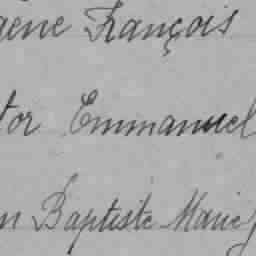 gène François
tor Emmanuel
n Baptiste Marie